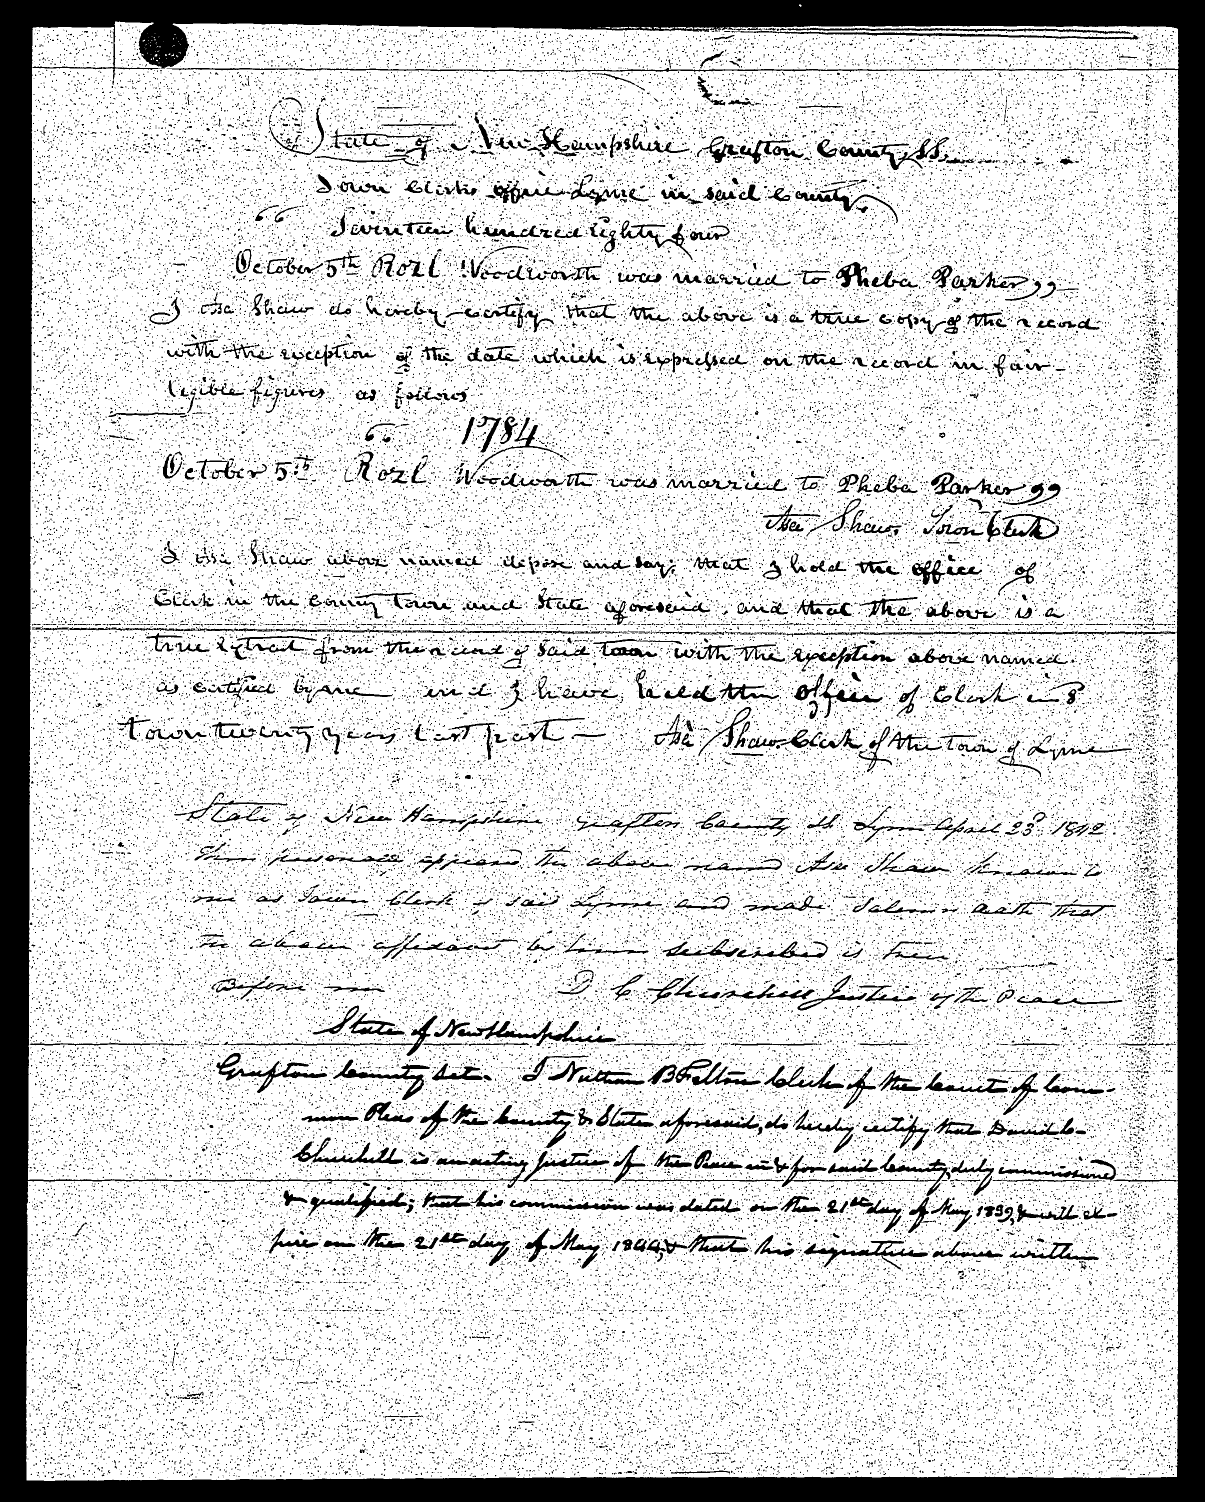 State of New Hampshire Grafton County SS.
Town Clerks office Lyme in said County.
"Seventeen hundred Eighty four
October 5th Rozl Woodworth was married to Pheba Parker"
I Asa Shaw do hereby certify that the above is a true copy of the record
with the exception of the date which is expressed on the record in fair
legible figures as follows
" 1784
October 5th Rozl Woodworth was married to Pheba Parker"
Asa Shaw. Town Clerk
I Asa Shaw above named depose and say; that I hold the office of
Clerk in the County Town and State aforesaid, and that the above is a
true Extract from the record of said town with the exception above named.
as certified by me and I have held the office of Clerk in
town twenty years last past — Asa Shaw Clerk of the Town of Lyme
State of New Hampshire Grafton County SS Lyme April 23d 1842.
Then personally appeared the above named Asa Shaw known to
me as Town Clerk of said Lyme and made Solemn Oath that
the above affidavit by him subscribed is true
Before me D C Churchill Justice of the Peace
State of New Hampshire
Grafton County Set. I Nathan B Felton Clerk of the Court of Com-
mon Pleas of the County & State aforesaid, do hereby certify that David C.
Churchill is an acting Justice of the Peace in & for said County, duly commissioned
& qualified; that his commission was dated on the 21st day of May 1839, & will ex-
pire on the 21st day of May 1844, & that his signature above written